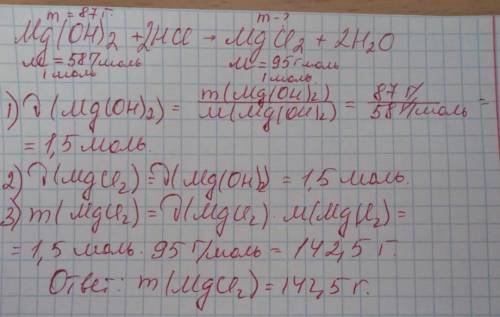 m = 87 г. m - ?
Mg(OH)2 + 2HCl → MgCl2 + 2H2O
M = 58 г/моль M = 95 г/моль
1 моль 1 моль
1) ν(Mg(OH)2) = m(Mg(OH)2) / M(Mg(OH)2) = 87 г / 58 г/моль =
= 1,5 моль.
2) ν(MgCl2) = ν(Mg(OH)2) = 1,5 моль.
3) m(MgCl2) = ν(MgCl2) · M(MgCl2) =
= 1,5 моль · 95 г/моль = 142,5 г.
Ответ: m(MgCl2) = 142,5 г.